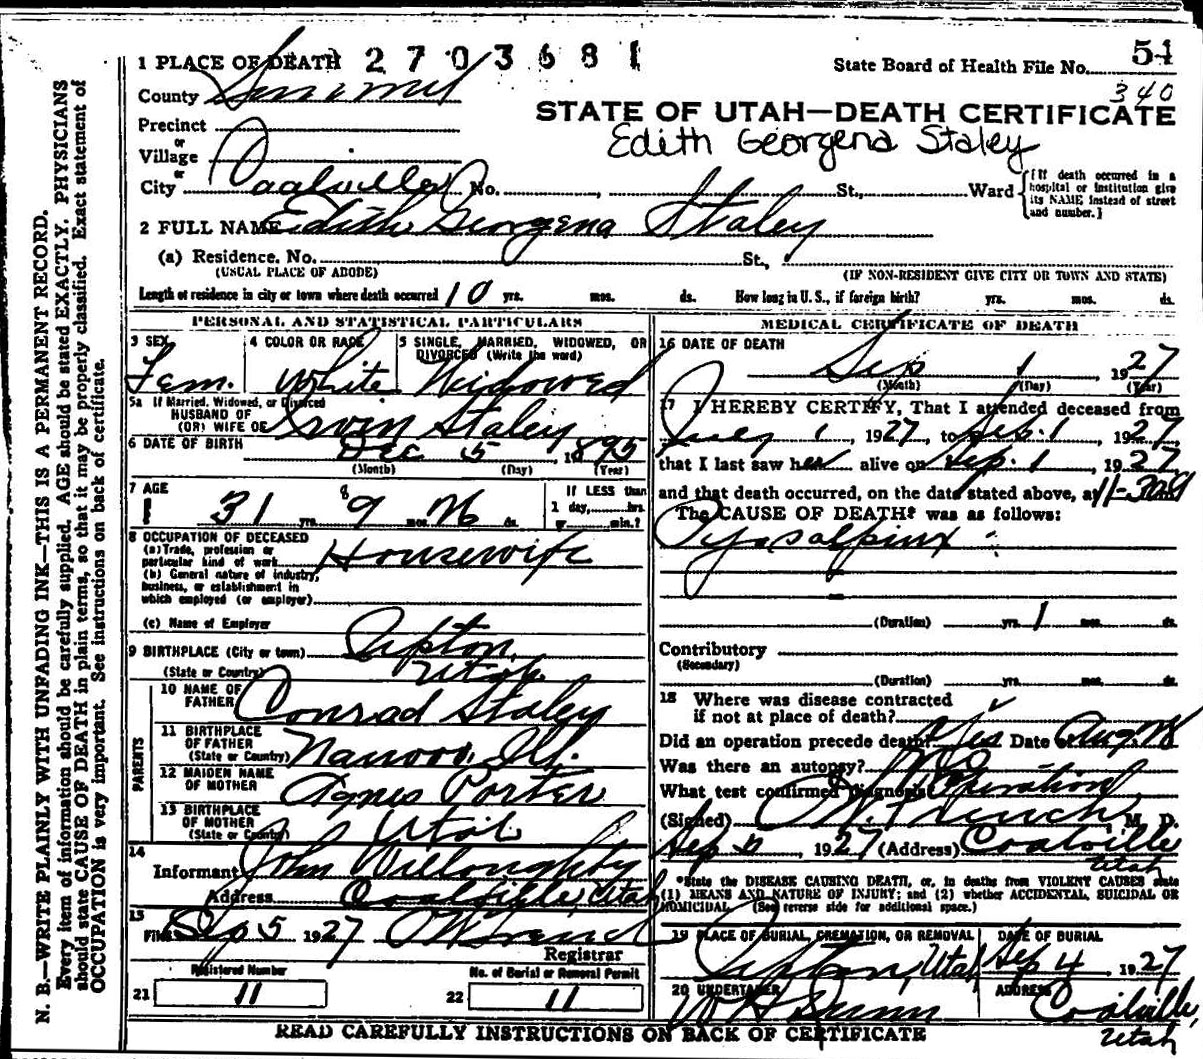 1 PLACE OF DEATH 2703681
State Board of Health File No. 54
340
County Summit
STATE OF UTAH—DEATH CERTIFICATE
Edith Georgena Staley
Precinct
or
Village
or
City Coalville No. St., Ward {If death occurred in a hospital or institution give its NAME instead of street and number.}
2 FULL NAME Edith Georgena Staley
(a) Residence. No. St.,
(USUAL PLACE OF ABODE) (IF NON-RESIDENT GIVE CITY OR TOWN AND STATE)
Length of residence in city or town where death occurred 10 yrs. mos. ds. How long in U. S., if foreign birth? yrs. mos. ds.
PERSONAL AND STATISTICAL PARTICULARS
3 SEX 4 COLOR OR RACE 5 SINGLE, MARRIED, WIDOWED, OR
DIVORCED (Write the word)
Fem. White Widowed
5a If Married, Widowed, or Divorced
HUSBAND OF
(OR) WIFE OF Irvin Staley
6 DATE OF BIRTH Dec 5 1895
(Month) (Day) (Year)
7 AGE If LESS than
31 yrs. 9 mos. 26 ds. 1 day, hrs.
or min.?
8 OCCUPATION OF DECEASED
(a) Trade, profession or
particular kind of work Housewife
(b) General nature of industry,
business, or establishment in
which employed (or employer)
(c) Name of Employer
9 BIRTHPLACE (City or town) Upton,
(State or Country) Utah
PARENTS
10 NAME OF
FATHER Conrad Staley
11 BIRTHPLACE
OF FATHER
(State or Country) Nauvoo, Ill.
12 MAIDEN NAME
OF MOTHER Agnes Porter
13 BIRTHPLACE
OF MOTHER
(State or Country) Utah
14
Informant John Willoughby
Address Coalville, Utah
15
Filed Sep 5 1927
Registrar
Registered Number No. of Burial or Removal Permit
21 11 22 11
MEDICAL CERTIFICATE OF DEATH
16 DATE OF DEATH
Sep 1 1927
(Month) (Day) (Year)
17 I HEREBY CERTIFY, That I attended deceased from
July 1, 1927, to Sep. 1, 1927,
that I last saw her alive on Sep. 1, 1927
and that death occurred, on the date stated above, at 11-30
The CAUSE OF DEATH* was as follows:
Pyosalpinx
(Duration) yrs. 1 mos. ds.
Contributory
(Secondary)
(Duration) yrs. mos. ds.
18 Where was disease contracted
if not at place of death?
Did an operation precede death? Yes Date of Aug. 28
Was there an autopsy? No
What test confirmed diagnosis? Operation
(Signed) M. D.
Sep 1927 (Address) Coalville
Utah
*State the DISEASE CAUSING DEATH, or, in deaths from VIOLENT CAUSES state
(1) MEANS AND NATURE OF INJURY; and (2) whether ACCIDENTAL, SUICIDAL OR
HOMICIDAL. (See reverse side for additional space.)
19 PLACE OF BURIAL, CREMATION, OR REMOVAL DATE OF BURIAL
Upton, Utah Sep 4, 1927
20 UNDERTAKER ADDRESS
Coalville,
Utah
READ CAREFULLY INSTRUCTIONS ON BACK OF CERTIFICATE
N. B.—WRITE PLAINLY WITH UNFADING INK—THIS IS A PERMANENT RECORD.
Every item of information should be carefully supplied. AGE should be stated EXACTLY. PHYSICIANS
should state CAUSE OF DEATH in plain terms, so that it may be properly classified. Exact statement of
OCCUPATION is very important. See instructions on back of certificate.